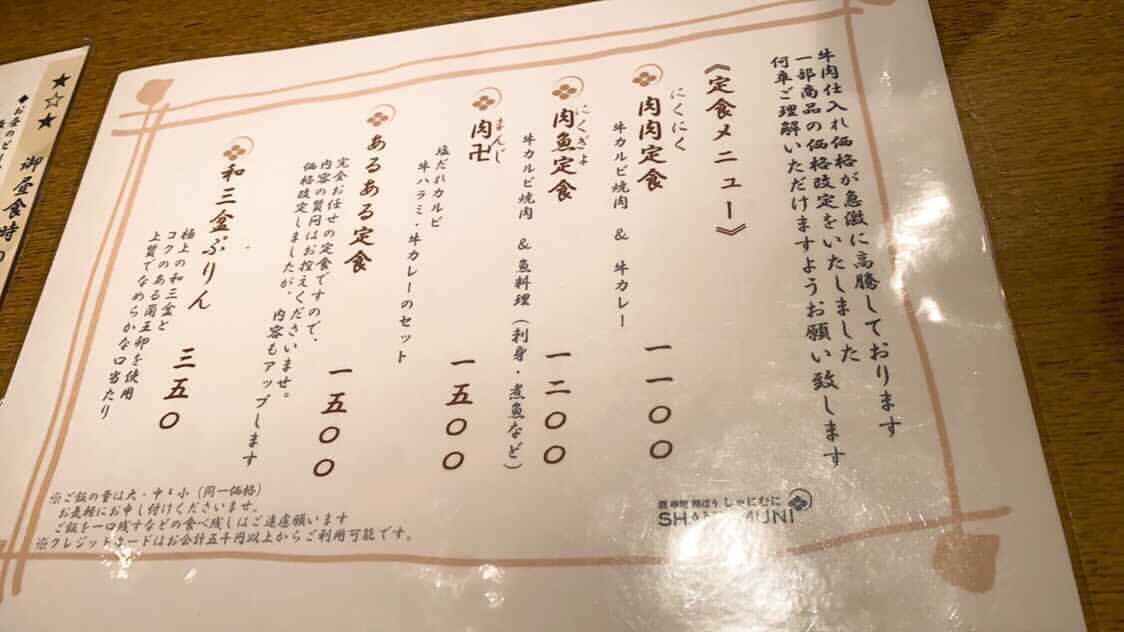 牛肉仕入れ価格が急激に高騰しております
一部商品の価格改定をいたしました
何卒ご理解いただけますようお願い致します
《定食メニュー》
にくにく
肉肉定食
一一〇〇
牛カルビ焼肉 & 牛カレー
にくぎょ
肉魚定食
一二〇〇
牛カルビ焼肉 & 魚料理(刺身・煮魚など)
まんじ
肉卍
一五〇〇
塩だれカルビ
牛ハラミ・牛カレーのセット
あるある定食
一五〇〇
完全お任せの定食ですので、
内容の質問はお控えくださいませ。
価格改定しましたが、内容もアップします
和三盆ぷりん
三五〇
極上の和三盆と
コクのある蘭王卵を使用
上質でなめらかな口当たり
※ご飯の量は大・中・小(同一価格)
お気軽にお申し付けくださいませ。
ご飯を一口残すなどの食べ残しはご遠慮願います
※クレジットカードはお会計五千円以上からご利用可能です。
しゃにむに
★☆★ 御昼食時の